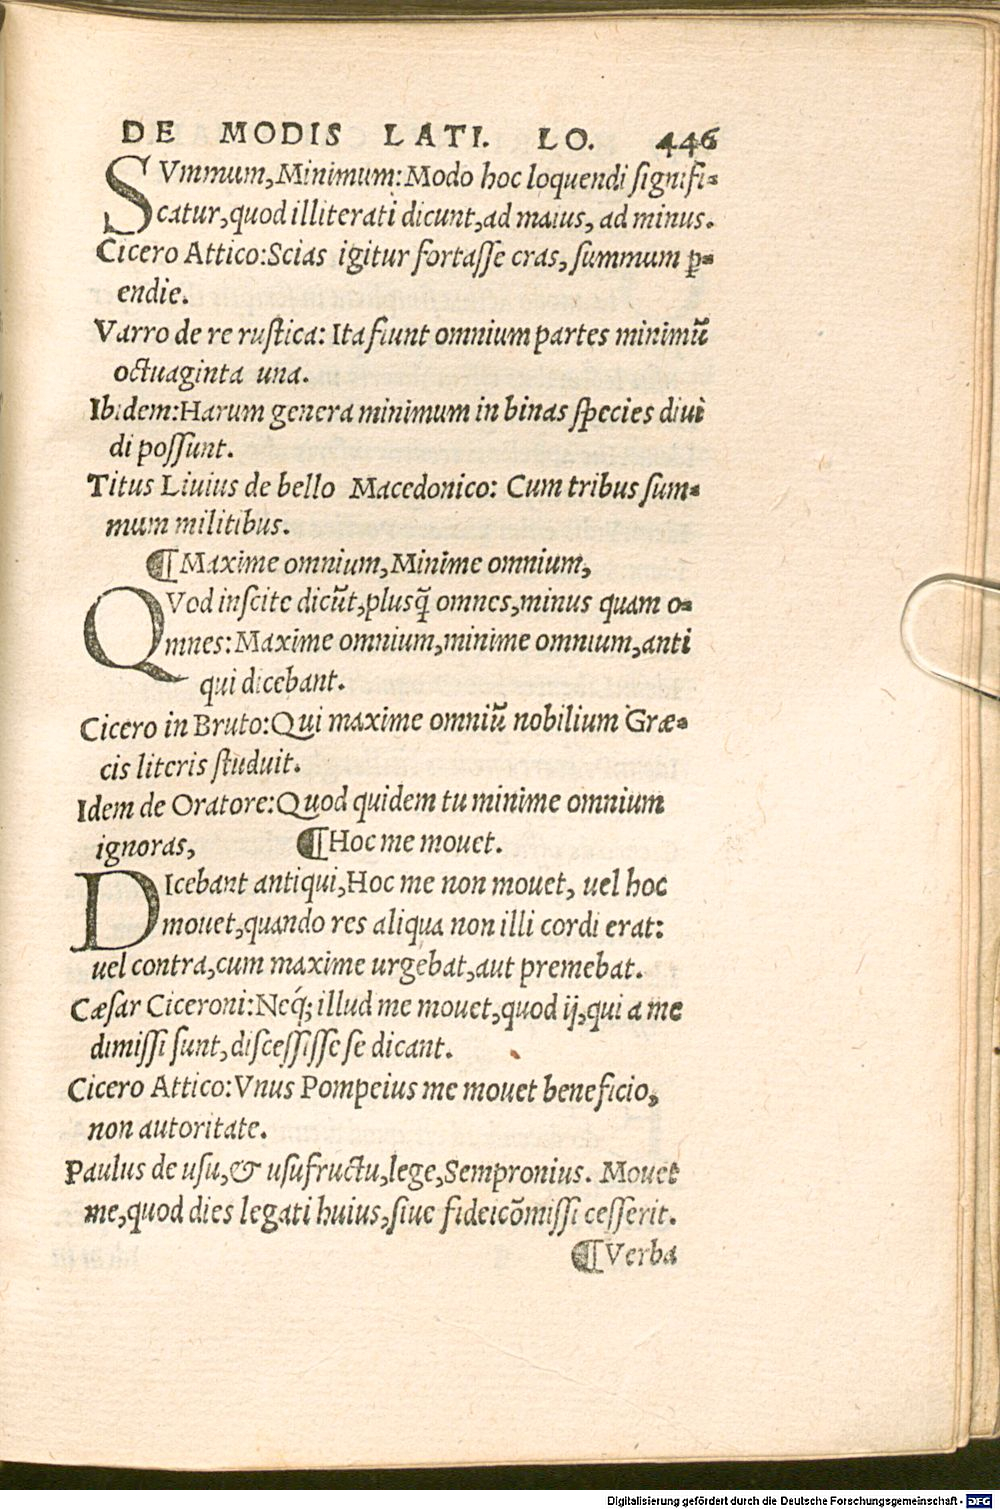 DE MODIS LATI. LO. 446
SVmmum, Minimum: Modo hoc loquendi signifi-
catur, quod illiterati dicunt, ad maius, ad minus.
Cicero Attico: Scias igitur fortaſſe cras, summum ꝑ-
endie.
Varro de re ruſtica: Ita fiunt omnium partes minimū
octuaginta una.
Ibidem: Harum genera minimum in binas ſpecies diui
di poſſunt.
Titus Liuius de bello Macedonico: Cum tribus sum-
mum militibus.
¶ Maxime omnium, Minime omnium,
QVod inſcite dicūt, plusq̃ omnes, minus quam o-
mnes: Maxime omnium, minime omnium, anti
qui dicebant.
Cicero in Bruto: Qui maxime omniū nobilium Græ-
cis literis ſtuduit.
Idem de Oratore: Quod quidem tu minime omnium
ignoras, ¶ Hoc me mouet.
DIcebant antiqui, Hoc me non mouet, uel hoc
mouet, quando res aliqua non illi cordi erat:
uel contra, cum maxime urgebat, aut premebat.
Cæſar Ciceroni: Neq́; illud me mouet, quod ij, qui a me
dimiſſi ſunt, diſceſſiſſe ſe dicant.
Cicero Attico: Vnus Pompeius me mouet beneficio,
non autoritate.
Paulus de uſu, & uſufructu, lege, Sempronius. Mouet
me, quod dies legati huius, ſiue fideicōmiſſi ceſſerit.
¶ Verba
Digitalisierung gefördert durch die Deutsche Forschungsgemeinschaft - DFG